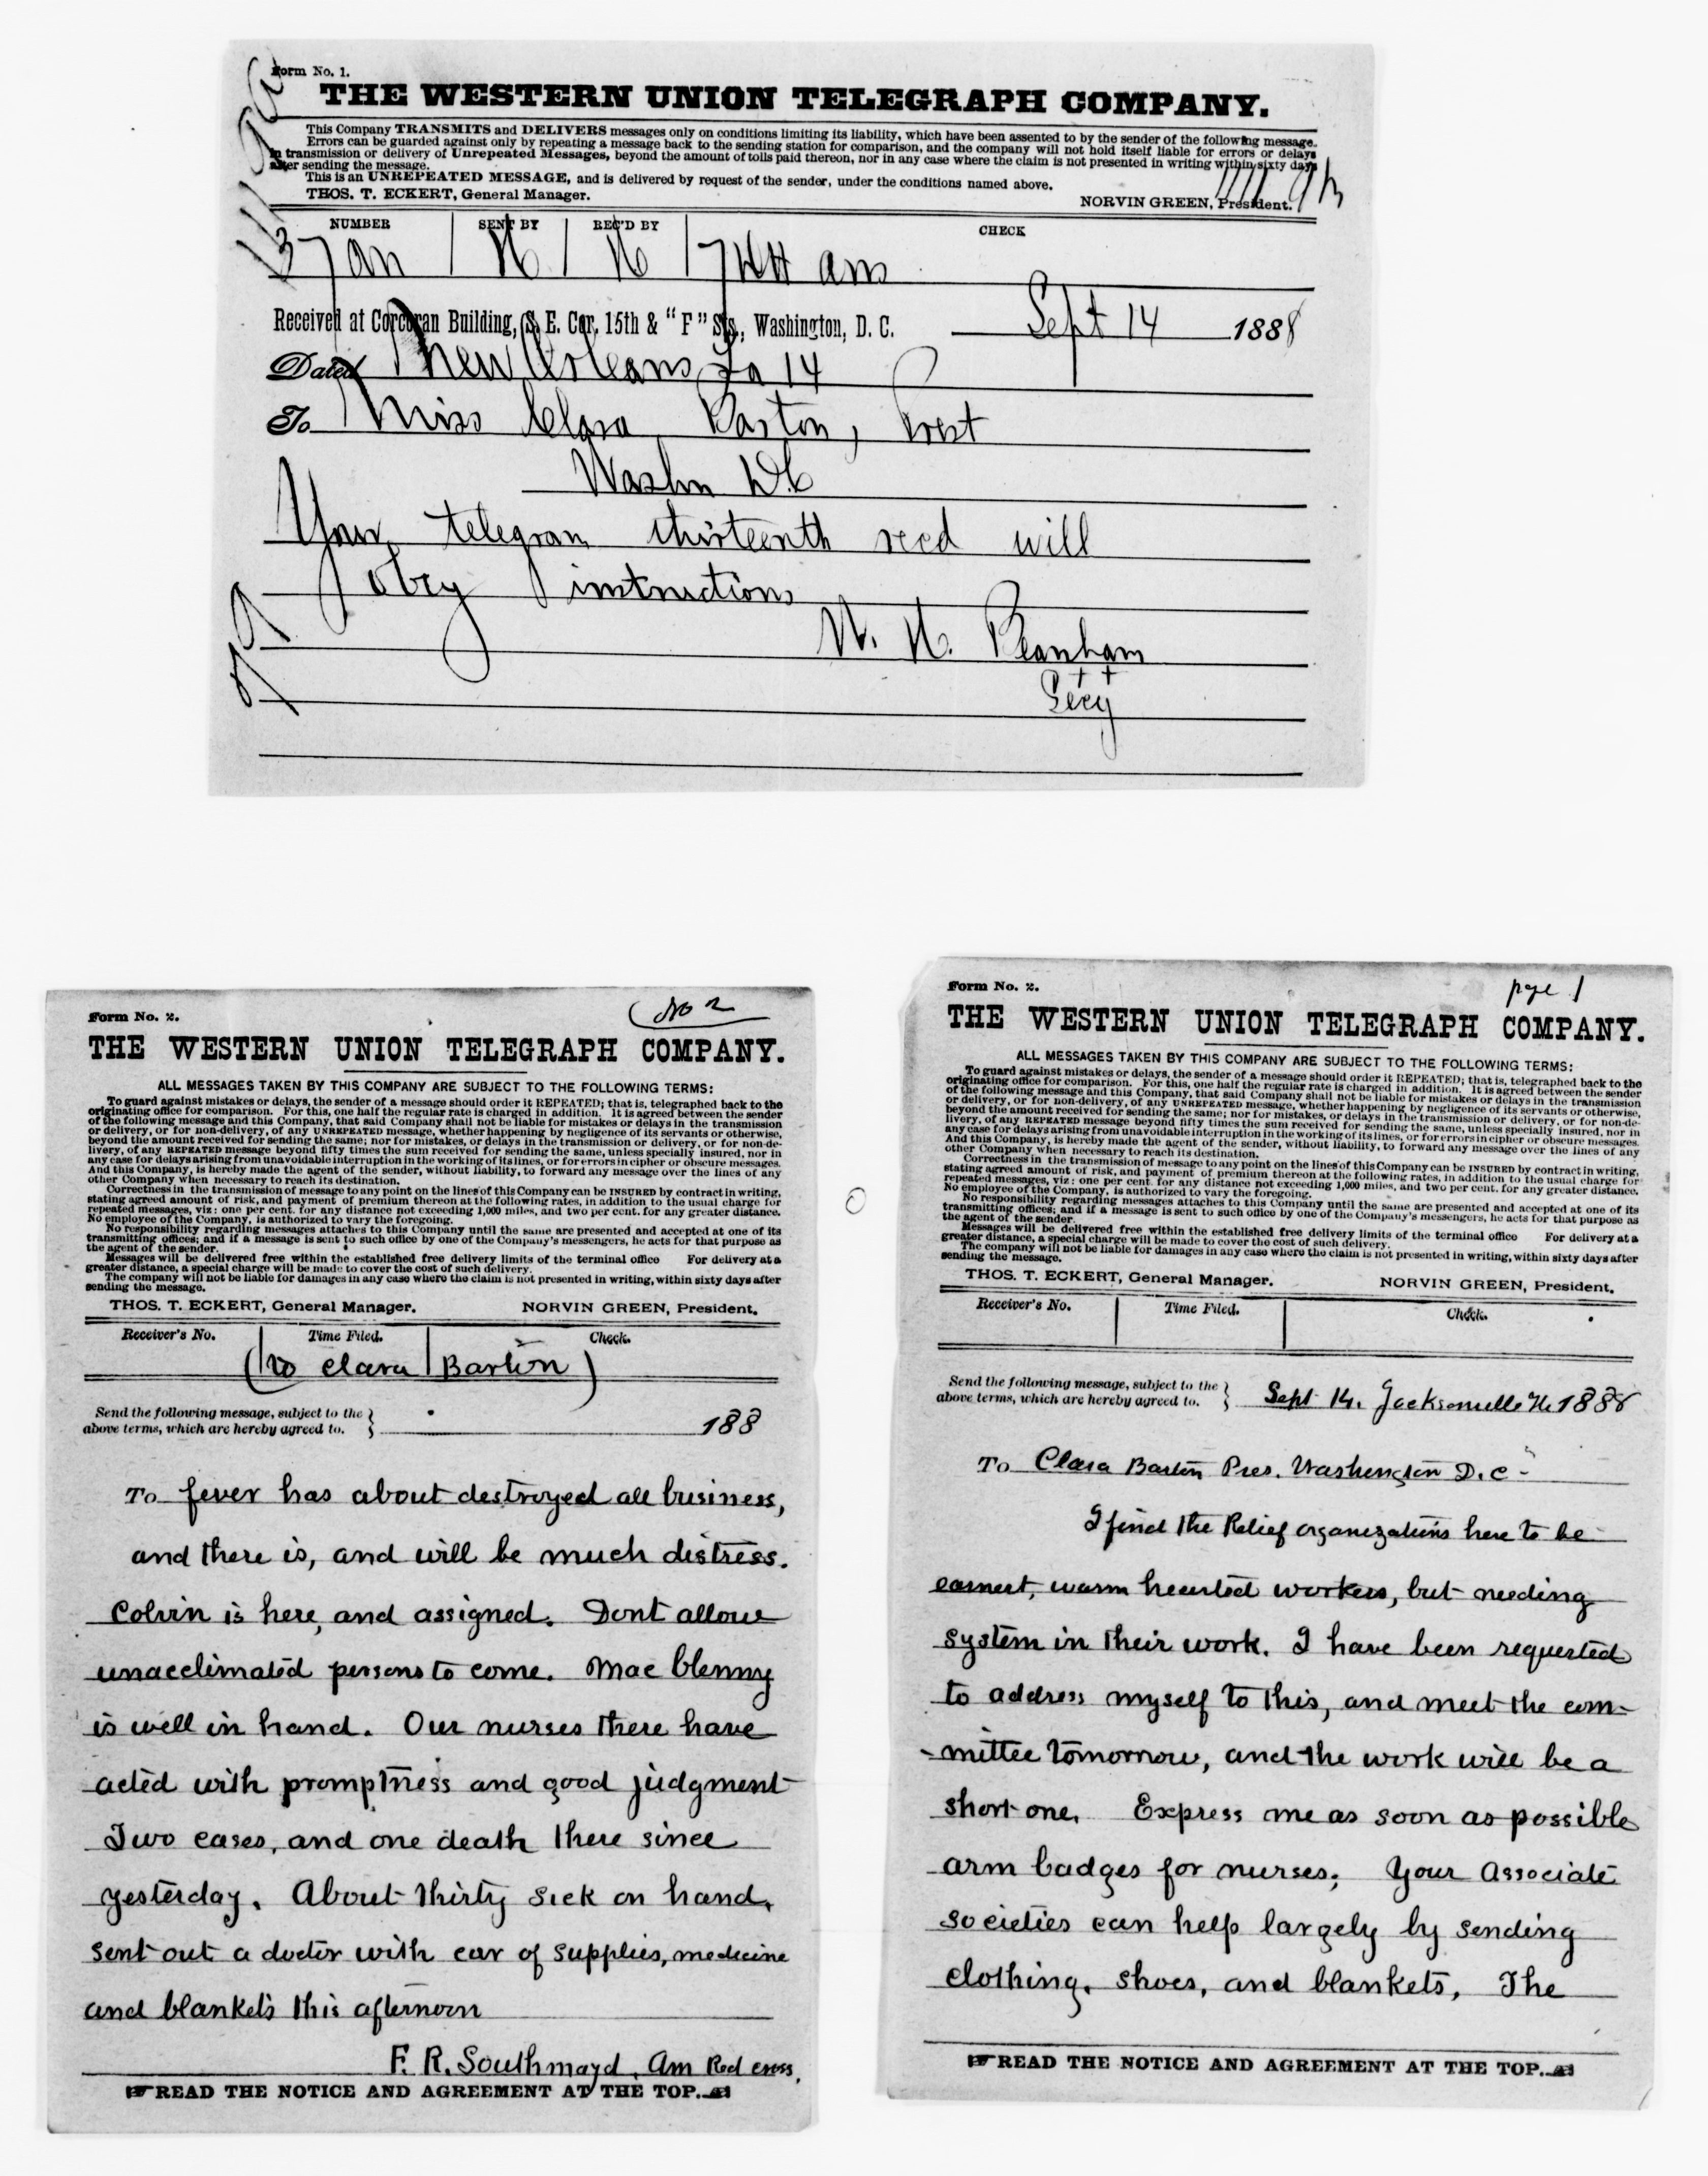 Form No. 1.
THE WESTERN UNION TELEGRAPH COMPANY.
This Company TRANSMITS and DELIVERS messages only on conditions limiting its liability, which have been assented to by the sender of the following message.
Errors can be guarded against only by repeating a message back to the sending station for comparison, and the company will not hold itself liable for errors or delays
in transmission or delivery of Unrepeated Messages, beyond the amount of tolls paid thereon, nor in any case where the claim is not presented in writing within sixty days
after sending the message.
This is an UNREPEATED MESSAGE, and is delivered by request of the sender, under the conditions named above.
THOS. T. ECKERT, General Manager.
NORVIN GREEN, President.
NUMBER SENT BY REC'D BY CHECK
Received at Corcoran Building, S. E. Cor. 15th & "F" Sts., Washington, D. C. Sept 14 1888
Dated New Orleans La 14
To Miss Clara Barton, Prest
Washn DC
Your telegram thirteenth recd will
obey instructions
Secy
Form No. 2.
page 1
THE WESTERN UNION TELEGRAPH COMPANY.
ALL MESSAGES TAKEN BY THIS COMPANY ARE SUBJECT TO THE FOLLOWING TERMS:
To guard against mistakes or delays, the sender of a message should order it REPEATED; that is, telegraphed back to the
originating office for comparison. For this, one half the regular rate is charged in addition. It is agreed between the sender
of the following message and this Company, that said Company shall not be liable for mistakes or delays in the transmission
or delivery, or for non-delivery, of any UNREPEATED message, whether happening by negligence of its servants or otherwise,
beyond the amount received for sending the same; nor for mistakes, or delays in the transmission or delivery, or for non-de-
livery, of any REPEATED message beyond fifty times the sum received for sending the same, unless specially insured, nor in
any case for delays arising from unavoidable interruption in the working of its lines, or for errors in cipher or obscure messages.
And this Company, is hereby made the agent of the sender, without liability, to forward any message over the lines of any
other Company when necessary to reach its destination.
Correctness in the transmission of message to any point on the lines of this Company can be INSURED by contract in writing,
stating agreed amount of risk, and payment of premium thereon at the following rates, in addition to the usual charge for
repeated messages, viz: one per cent. for any distance not exceeding 1,000 miles, and two per cent. for any greater distance.
No employee of the Company, is authorized to vary the foregoing.
No responsibility regarding messages attaches to this Company until the same are presented and accepted at one of its
transmitting offices; and if a message is sent to such office by one of the Company's messengers, he acts for that purpose as
the agent of the sender.
Messages will be delivered free within the established free delivery limits of the terminal office For delivery at a
greater distance, a special charge will be made to cover the cost of such delivery.
The company will not be liable for damages in any case where the claim is not presented in writing, within sixty days after
sending the message.
THOS. T. ECKERT, General Manager. NORVIN GREEN, President.
Receiver's No. Time Filed. Check.
Send the following message, subject to the
above terms, which are hereby agreed to. Sept 14. Jacksonville Fl. 1888
To Clara Barton Pres. Washington D.C-
I find the Relief organizations here to be
earnest, warm hearted workers, but needing
system in their work. I have been requested
to address myself to this, and meet the com-
-mittee tomorrow, and the work will be a
short one. Express me as soon as possible
arm badges for nurses; Your Associate
societies can help largely by sending
clothing, shoes, and blankets, The
READ THE NOTICE AND AGREEMENT AT THE TOP.
Form No. 2.
No 2
THE WESTERN UNION TELEGRAPH COMPANY.
ALL MESSAGES TAKEN BY THIS COMPANY ARE SUBJECT TO THE FOLLOWING TERMS:
To guard against mistakes or delays, the sender of a message should order it REPEATED; that is, telegraphed back to the
originating office for comparison. For this, one half the regular rate is charged in addition. It is agreed between the sender
of the following message and this Company, that said Company shall not be liable for mistakes or delays in the transmission
or delivery, or for non-delivery, of any UNREPEATED message, whether happening by negligence of its servants or otherwise,
beyond the amount received for sending the same; nor for mistakes, or delays in the transmission or delivery, or for non-de-
livery, of any REPEATED message beyond fifty times the sum received for sending the same, unless specially insured, nor in
any case for delays arising from unavoidable interruption in the working of its lines, or for errors in cipher or obscure messages.
And this Company, is hereby made the agent of the sender, without liability, to forward any message over the lines of any
other Company when necessary to reach its destination.
Correctness in the transmission of message to any point on the lines of this Company can be INSURED by contract in writing,
stating agreed amount of risk, and payment of premium thereon at the following rates, in addition to the usual charge for
repeated messages, viz: one per cent. for any distance not exceeding 1,000 miles, and two per cent. for any greater distance.
No employee of the Company, is authorized to vary the foregoing.
No responsibility regarding messages attaches to this Company until the same are presented and accepted at one of its
transmitting offices; and if a message is sent to such office by one of the Company's messengers, he acts for that purpose as
the agent of the sender.
Messages will be delivered free within the established free delivery limits of the terminal office For delivery at a
greater distance, a special charge will be made to cover the cost of such delivery.
The company will not be liable for damages in any case where the claim is not presented in writing, within sixty days after
sending the message.
THOS. T. ECKERT, General Manager. NORVIN GREEN, President.
Receiver's No. Time Filed. Check.
(to Clara Barton)
Send the following message, subject to the
above terms, which are hereby agreed to. 188
To fever has about destroyed all business,
and there is, and will be much distress.
Colvin is here, and assigned. Dont allow
unacclimated persons to come. Mac Clenny
is well in hand. Our nurses there have
acted with promptness and good judgment
Two cases, and one death there since
yesterday. About thirty sick on hand,
sent out a doctor with car of supplies, medicine
and blankets this afternoon
F. R. Southmayd, Am Red cross.
READ THE NOTICE AND AGREEMENT AT THE TOP.